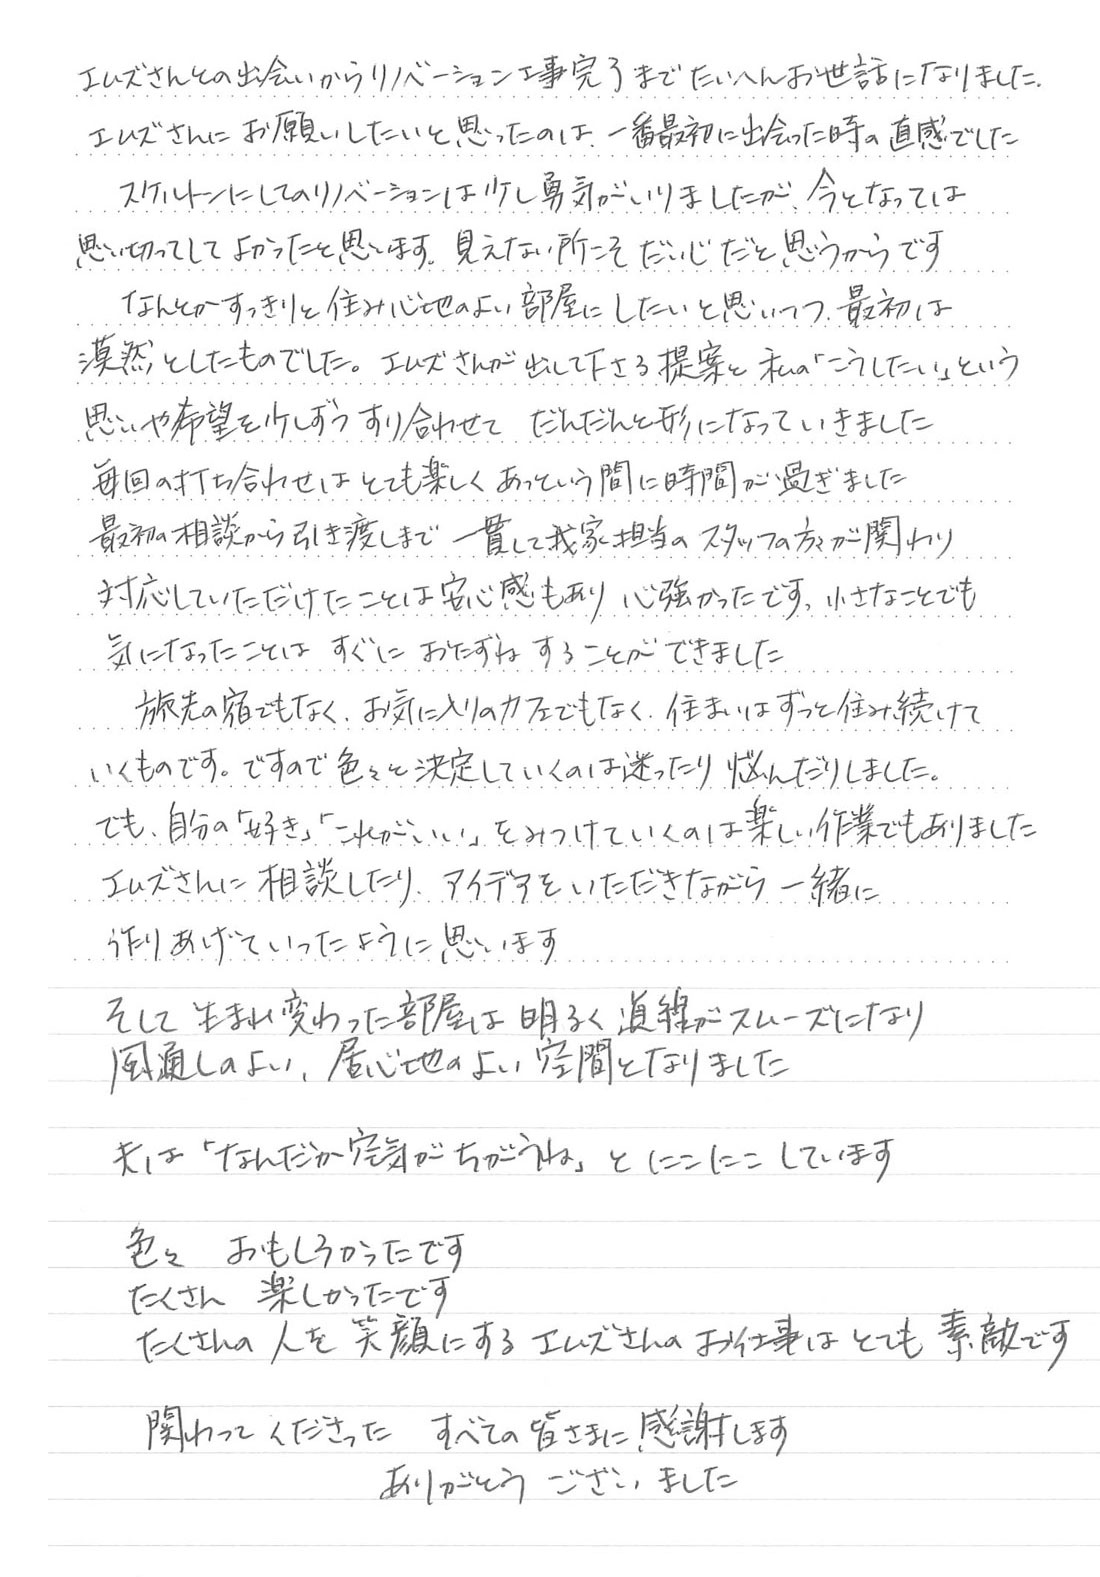 エムズさんとの出会いからリノベーション工事完了までたいへんお世話になりました.
エムズさんに お願いしたいと思ったのは、一番最初に出会った時の直感でした
スケルトンにしてのリノベーションは少し勇気がいりましたが、今となっては
思い切ってして よかったと思います。見えない所こそ だいじだと思うからです
なんとかすっきりと住み心地のよい部屋にしたいと思いつつ、最初は
漠然としたものでした。エムズさんが出して下さる提案と私の「こうしたい」という
思いや希望を少しずつ すり合わせて だんだんと形になっていきました
毎回の打ち合わせは とても楽しく あっという間に時間が過ぎました
最初の相談から引き渡しまで 一貫して我家担当の スタッフの方々が関わり
対応していただけたことは安心感もあり 心強かったです。小さなことでも
気になったことは すぐに おたずねすることができました
旅先の宿でもなく、お気に入りのカフェでもなく、住まいはずっと住み続けて
いくものです。ですので色々と決定していくのは迷ったり 悩んだりしました。
でも、自分の「好き」「これがいい」をみつけていくのは楽しい作業でもありました
エムズさんに相談したり、アイデアをいただきながら一緒に
作りあげていったように思います
そして 生まれ変わった部屋は 明るく 導線がスムーズになり
風通しのよい、居心地のよい空間となりました
夫は「なんだか空気がちがうね」と にこにこしています
色々 おもしろかったです
たくさん 楽しかったです
たくさんの人を笑顔にするエムズさんのお仕事はとても素敵です
関わってくださった すべての皆さまに感謝します
ありがとうございました